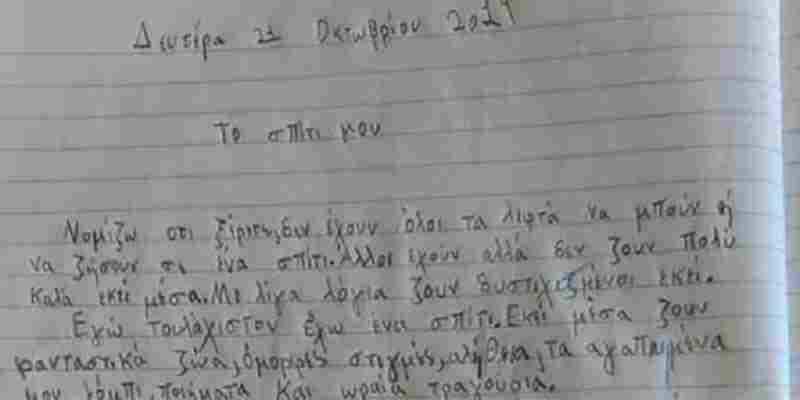 Δευτέρα 21 Οκτωβρίου 2024
Το σπίτι μου
Νομίζω οτι ξέρετε, δεν έχουν όλοι τα λεφτά να μπούν ή
να ζήσουν σε ένα σπίτι. Άλλοι έχουν αλλά δεν ζουν πολύ
καλά εκεί μέσα. Με λίγα λόγια ζουν δυστιχεζμένοι εκεί.
Εγώ τουλάχιστον έχω ένα σπίτι. Εκεί μέσα ζουν
φανταστικά ζώα, όμορφες στιγμές, αλήθεια, τα αγαπημένα
μου χόμπι, ποιήματα και ωραία τραγουδια.